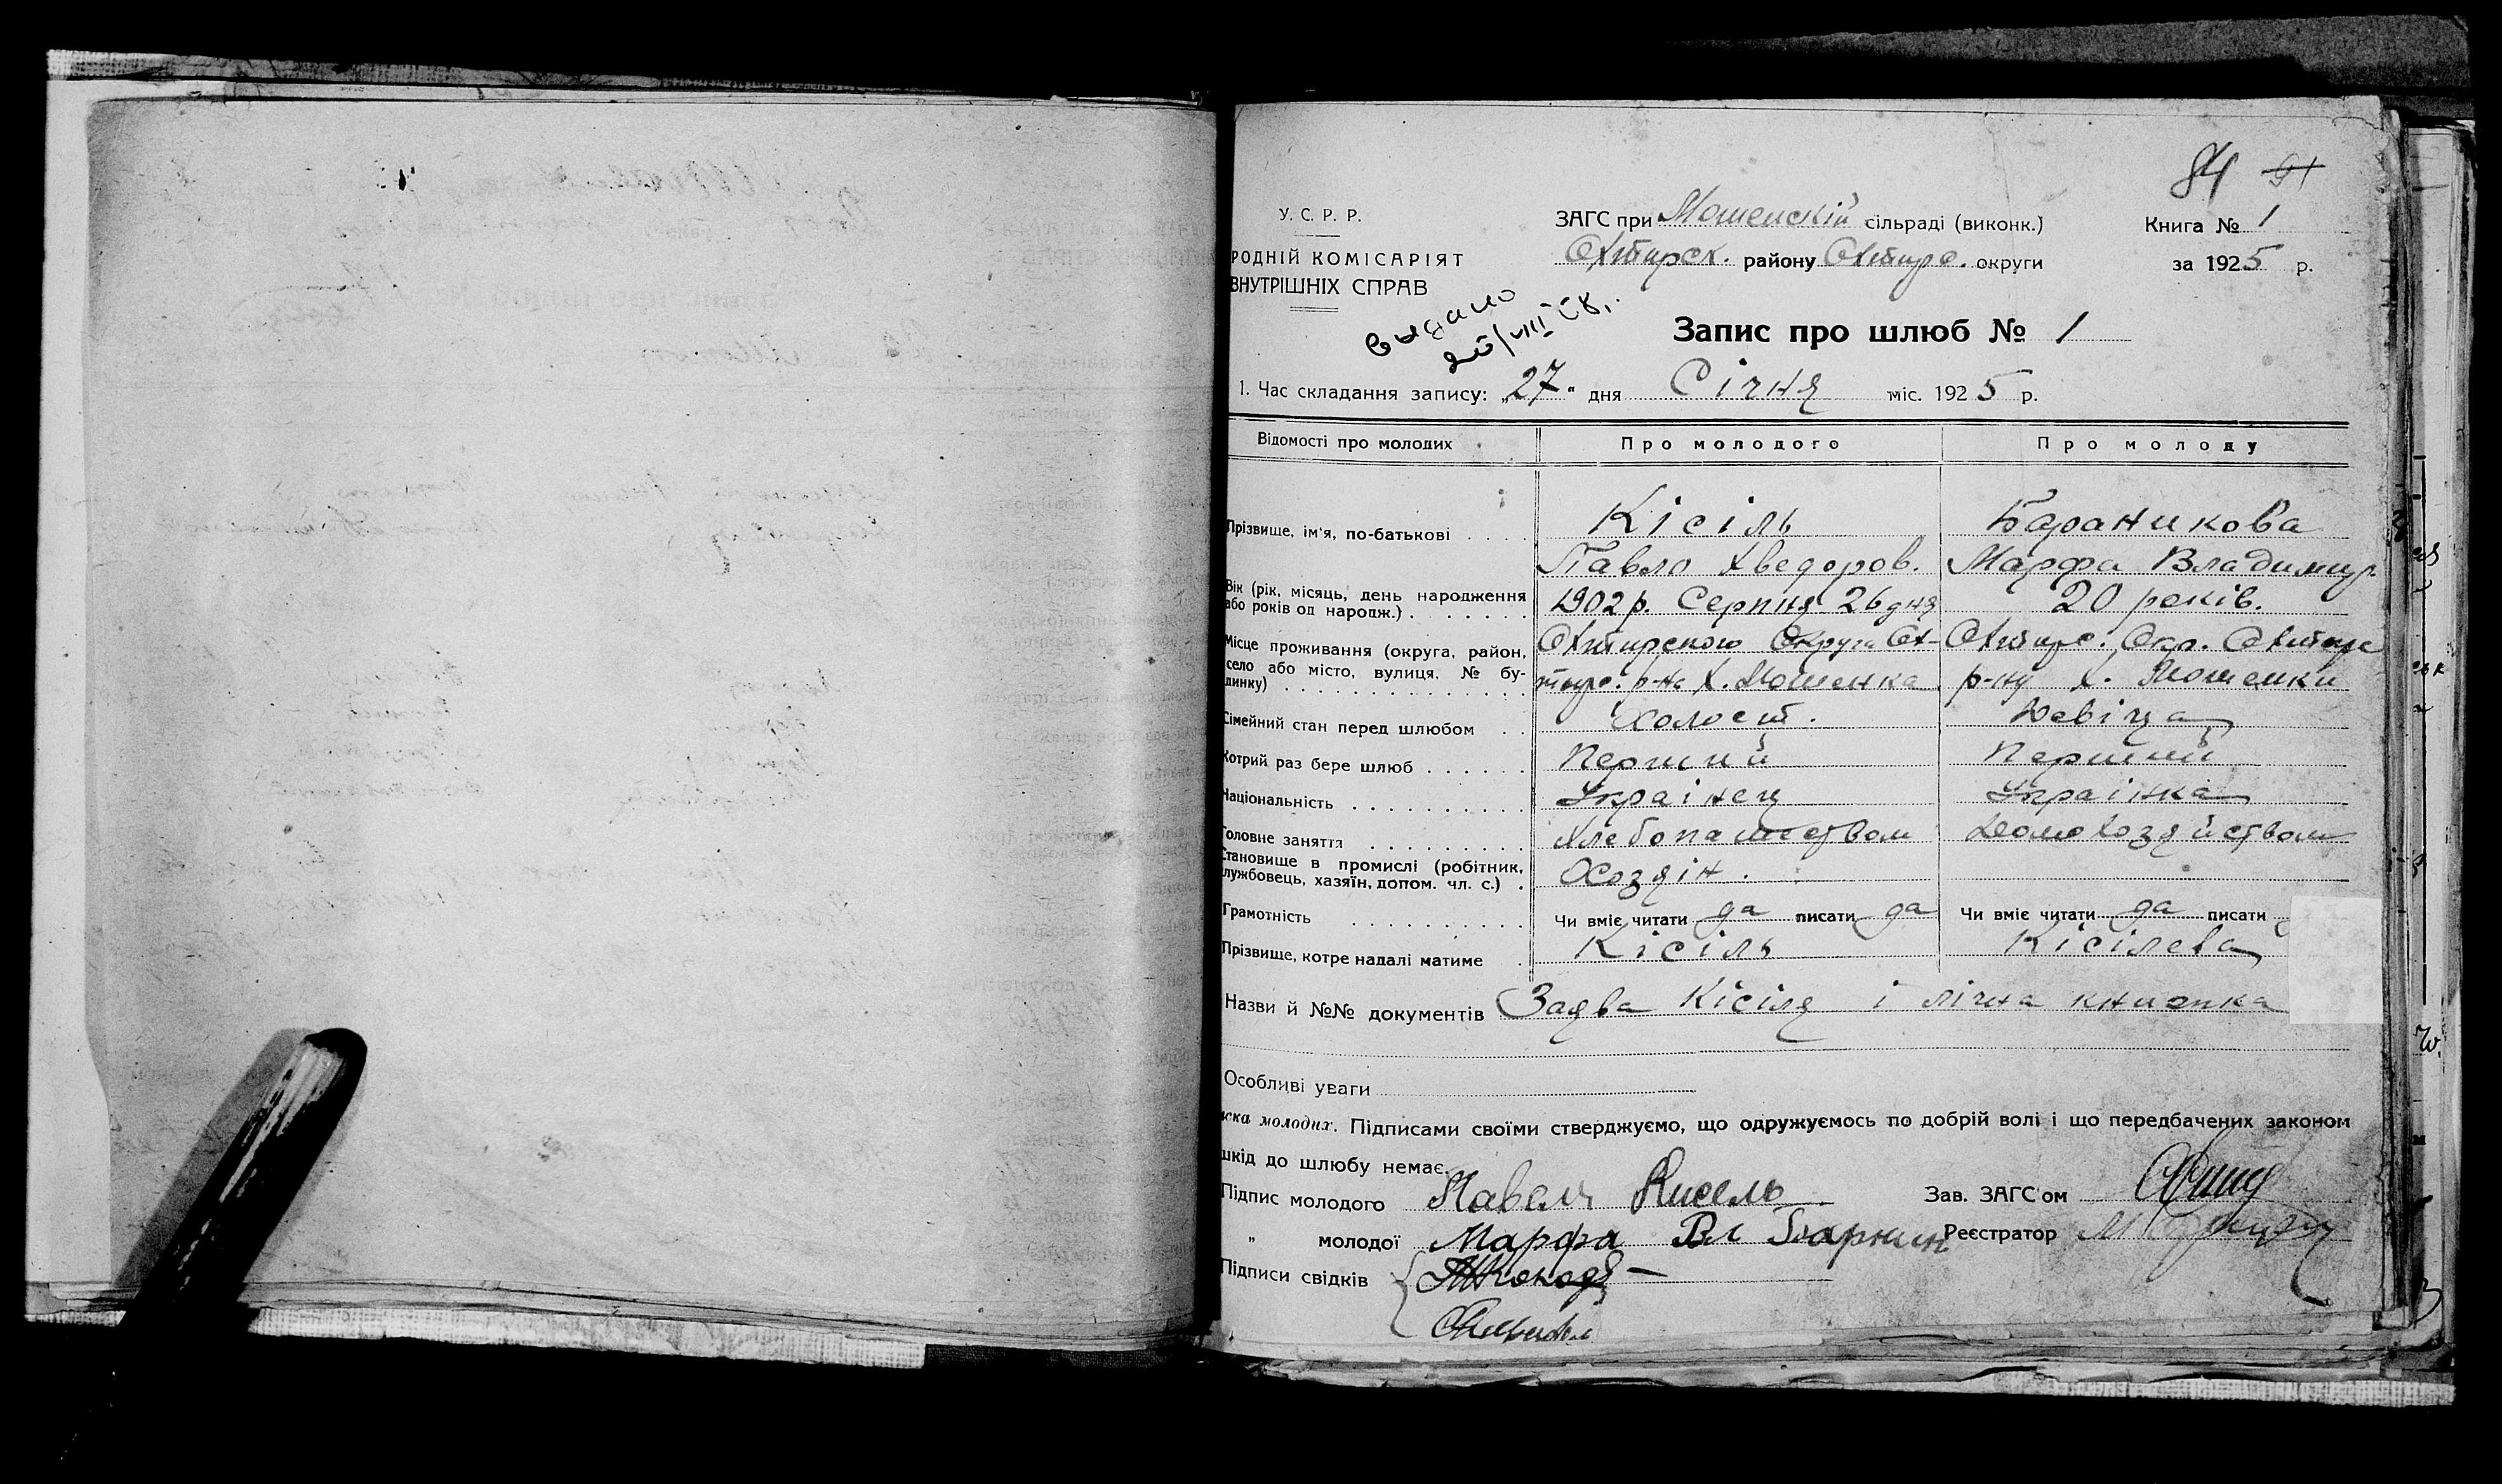 84 91
У. С. Р. Р.
РОДНІЙ КОМІСАРІЯТ
ВНУТРІШНІХ СПРАВ
ЗАГС при Мошенскій сільраді (виконк.)
Охтирск. району Охтирс. округи
Книга № 1
за 1925 р.
выдано
Запис про шлюб № 1
1. Час складання запису: „27" дня Січня міс. 1925 р.
Відомості про молодих Про молодого Про молоду
Прізвище, ім'я, по-батькові . . . . Кісіль Бараникова
Павло Хведоров. Марфа Владимир.
Вік (рік, місяць, день народження
або років од народж.) . . . . . . . 1902 р. Серпня 26 дня 20 років.
Місце проживання (округа, район, Охтирского Округа Ох- Охтирс. Окр. Охтирс
село або місто, вулиця, № бу-
динку) . . . . . . . . . . . . . . тирс. р-на Х. Мошенка р-ну х. Мошемки
Сімейний стан перед шлюбом . . Холост. Девіца
Котрий раз бере шлюб . . . . . . Перший Перший
Національність . . . . . . . . . . Украінец Украінка
Головне заняття . . . . . . . . . Хлебопашеством Домохозяйством
Становище в промислі (робітник,
лужбовець, хазяїн, допом. чл. с.) . Хозяін.
Грамотність . . . . . . . . . . Чи вміє читати да писати да Чи вміє читати да писати
Прізвище, котре надалі матиме . Кісіль Кісілева
Назви й №№ документів Заява Кісіля і лічна книжка
Особливі уваги
ска молодих. Підписами своїми стверджуємо, що одружуємось по добрій волі і що передбачених законом
шкід до шлюбу немає.
Підпис молодого Павел Кисель Зав. ЗАГС'ом
„ молодої Марфа Вл Барнин Реєстратор
Підписи свідків